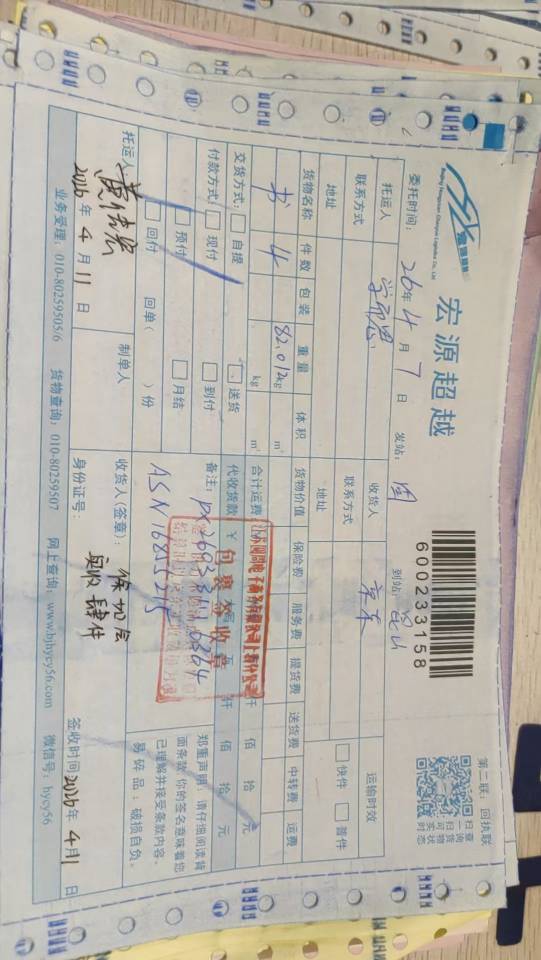 宏源超越
Beijing Hongyuan Chaoyue Logistics Co., Ltd.
6002333158
第二联：回执联
扫一扫
查询货物
实时状态
委托时间：26年4月7日
发站：
到站：昆山
托运人
学而思
收货人
京东
运输时效
联系方式
联系方式
快件
普件
地址
地址
货物名称
件数
包装
重量
体积
货物价值
保险费
服务费
提货费
送货费
中转费
运费
书
4
82.012kg
kg
m³
m³
合计运费
仟
佰
拾
元
交货方式：
自提
送货
代收货款
￥
仟
佰
拾
元
付款方式：
现付
到付
预付
月结
回付
回单（ ）份
备注：
ASN16855715
包裹签收章
郑重声明：请仔细阅读背
面条款 你的签名意味着您
已理解并接受条款内容。
易碎品：破损自负。
托运人：
2026年4月11日
制单人
收货人（签章）：
实收肆件
身份证号：
签收时间
年
月
日
业务受理：010-80259505/6
货物查询：010-80259507
网上查询：www.bjhycy56.com
微信号：hycy56